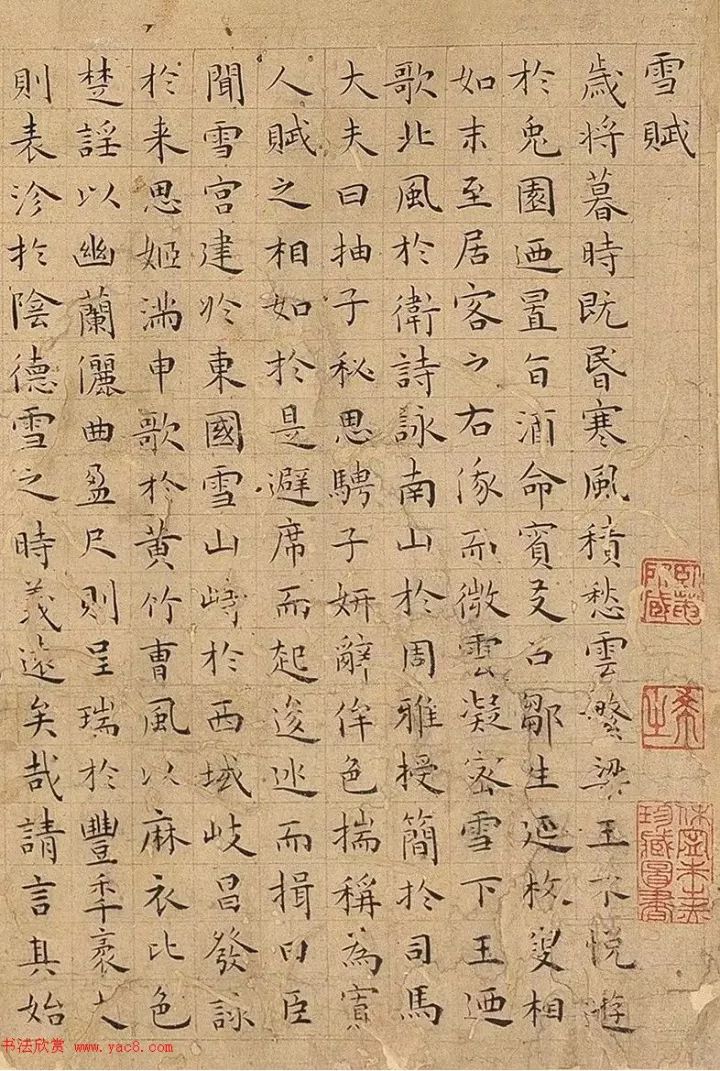 雪賦
歲將暮時既昬寒風積愁雲繁梁王不悅遊
於兔園迺置旨酒命賓友召鄒生延枚叟相
如末至居客之右俄而微雲凝密雪下王迺
歌北風於衛詩詠南山於周雅授簡於司馬
大夫曰抽子秘思騁子妍辭侔色揣稱為寡
人賦之相如於是避席而起逡巡而揖曰臣
聞雪宮建於東國雪山峙於西域岐昌發詠
於来思姬滿申歌於黃竹曹風以麻衣比色
楚謡以幽蘭儷曲盈尺則呈瑞於豐年袤丈
則表沴於陰德雪之時義遠矣哉請言其始
珍藏圖書
书法欣赏 www.yac8.com